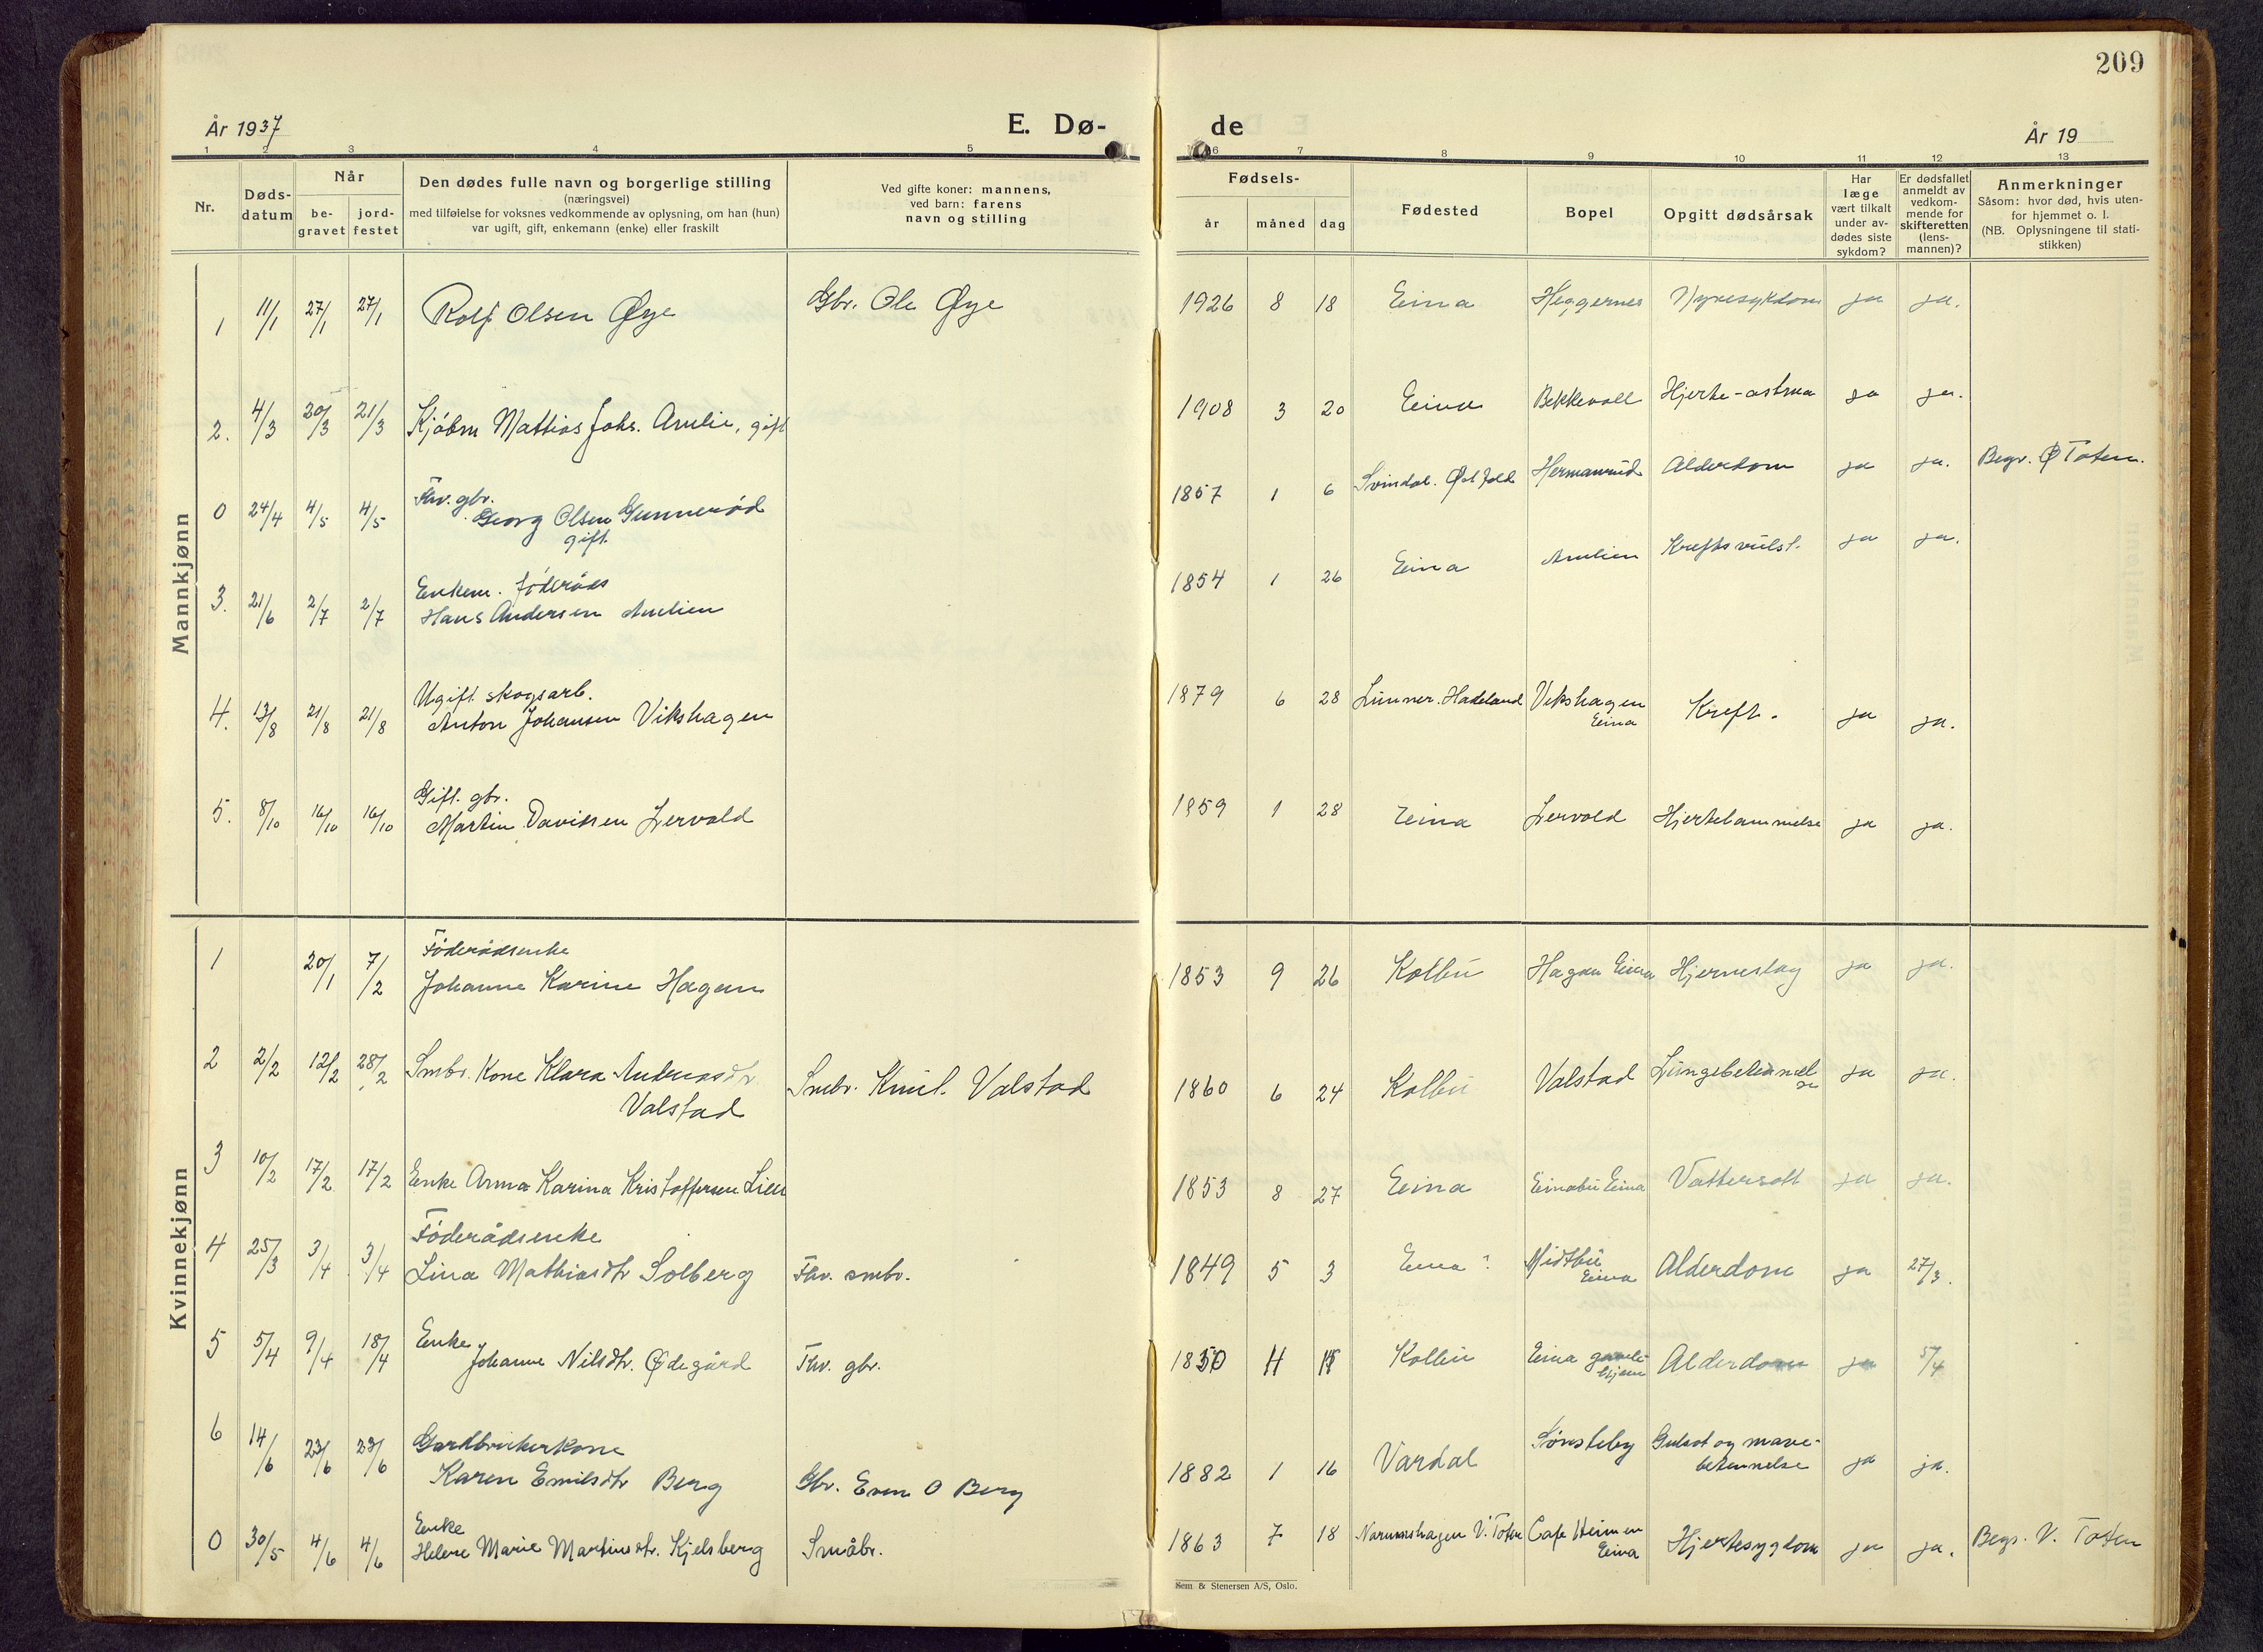 209
År 1937
E. Dø-
de
År 19
1 2 3 4 5 6 7 8 9 10 11 12 13
Nr.
Døds-
datum
Når
be-
gravet
jord-
festet
Den dødes fulle navn og borgerlige stilling
(næringsvei)
med tilføielse for voksnes vedkommende av oplysning, om han (hun)
var ugift, gift, enkemann (enke) eller fraskilt
Ved gifte koner: mannens,
ved barn: farens
navn og stilling
Fødsels-
år måned dag
Fødested
Bopel
Opgitt dødsårsak
Har
læge
vært tilkalt
under av-
dødes siste
sykdom?
Er dødsfallet
anmeldt av
vedkom-
mende for
skifteretten
(lens-
mannen)?
Anmerkninger
Såsom: hvor død, hvis uten-
for hjemmet o. l.
(NB. Oplysningene til stati-
stikken)
Mannkjønn
1 11/1 27/1 27/1 Rolf Olsen Øye Gbr. Ole Øye 1926 8 18 Eina Heggernes Nyresykdom ja ja.
2. 4/3 20/3 21/3 Kjøbm Mattias Johs. Amlie, gift 1908 3 20 Eina Bekkevoll Hjerte-astma ja ja.
0 24/4 4/5 4/5 Fhv. gbr.
Georg Olsen Gunnerød
gift. 1857 1 6 Svindal. Østfold Hermanrud Alderdom ja ja. Begr. Ø Toten.
3. 21/6 2/7 2/7 Enkem. føderåds
Hans Andersen Amlien 1854 1 26 Eina Amlien Kreftsvulst. ja ja.
4. 13/8 21/8 21/8 Ugift skogsarb.
Anton Johansen Vikshagen 1879 6 28 Lunner. Hadeland Vikshagen
Eina Kreft. ja ja.
5. 8/10 16/10 16/10 Gift. gbr.
Martin Davidsen Lervold 1859 1 28 Eina Lervold Hjertelammelse ja ja.
Kvinnekjønn
1 20/1 7/2 Føderådsenke
Johanne Karine Hagen 1853 9 26 Kolbu Hagen Eina Hjerneslag ja ja.
2 2/2 12/2 28/2 Smbr. Kone Klara Andreasdtr
Valstad Smbr. Knut. Valstad 1860 6 24 Kolbu Valstad Lungebetennel
se ja ja.
3 10/2 17/2 17/2 Enke Anna Karina Kristoffersen Lien 1853 8 27 Eina Einabu Eina Vattersott ja ja.
4 25/3 3/4 3/4 Føderådsenke
Lina Mathiasdtr Solberg Fhv. smbr. 1849 5 3 Eina ? Midtbu
Eina Alderdom ja 27/3.
5 5/4 9/4 18/4 Enke
Johanne Nilsdtr. Ødegård Fhv. gbr. 1850 4 Kolbu Eina gamle
hjem Alderdom ja 5/4
6 14/6 23/6 23/6 Gardbrukerkone
Karen Emilsdtr Berg Gbr. Even O Berg 1882 1 16 Vardal Sønsteby Gulsot og mave-
betennelse ja ja.
0 30/5 4/6 4/6 Enke
Helene Marie Martinusdtr. Kjelsberg Småbr. 1863 7 18 Narumshagen V. Toten Cafe Heimen
Eina Hjertesygdom ja ja. Begr. V. Toten
Sem & Stenersen A/S, Oslo.